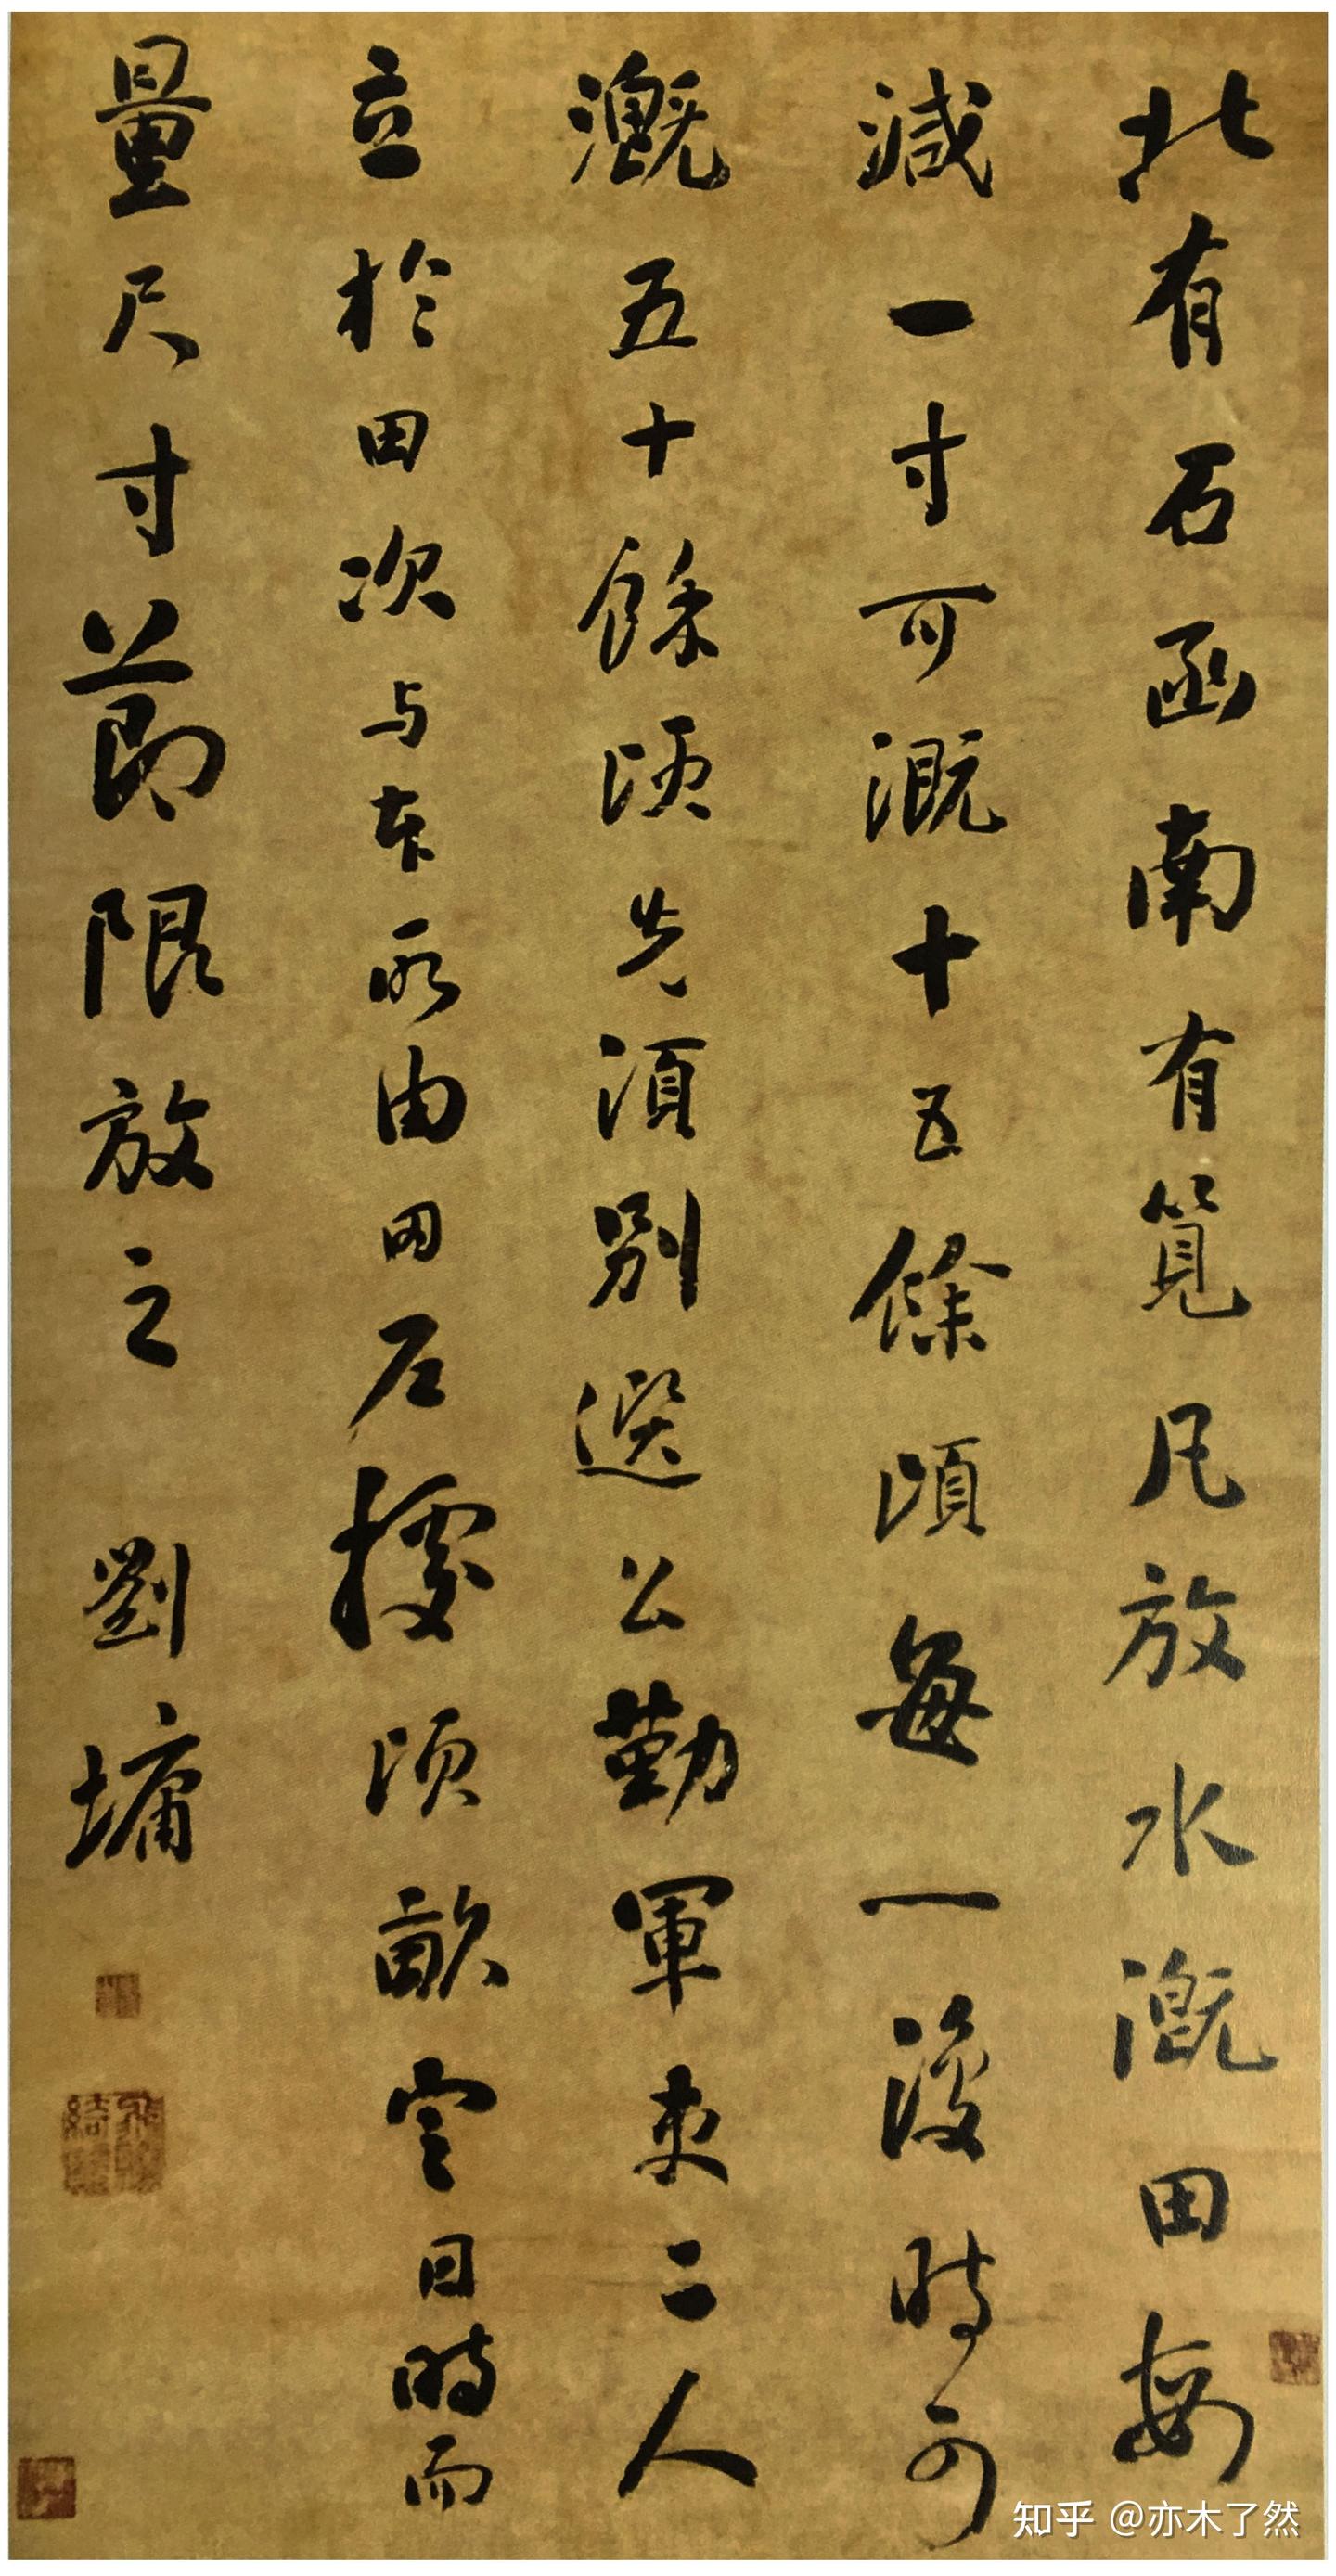 北有石函南有筧凡放水溉田每
減一寸可溉十五餘頃每一復時可
溉五十餘頃先須別選公勤軍吏二人
立於田次与本所由田戶據頃畝定日時而
量尺寸節限放之 劉墉
知乎 @亦木了然